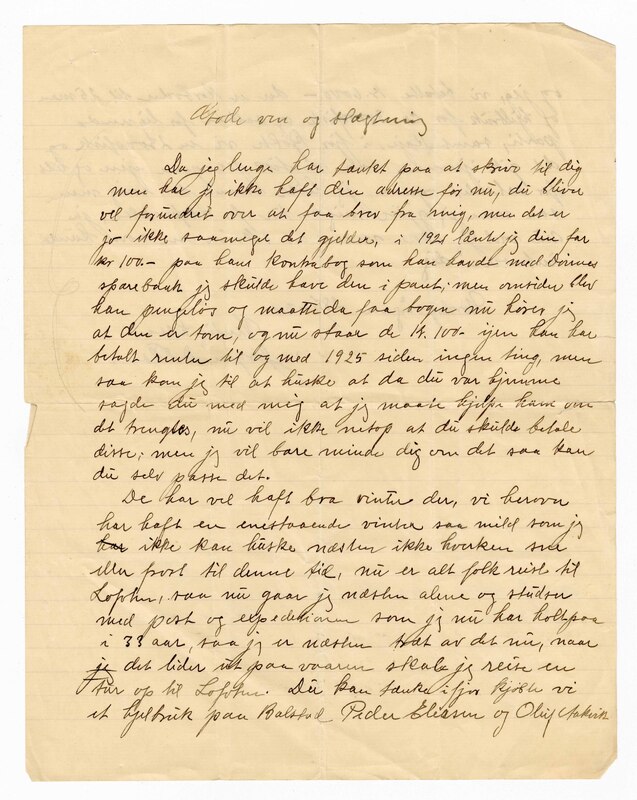 Gode ven og slægtning
Da jeg lenge har tænkt paa at skrive til dig
men har jeg ikke haft din adresse før nu, du bliver
vel forundret over at faa brev fra mig, men det er
jo ikke saameget det gjelder, i 1921 lånte jeg din far
kr 100.- paa hans kontrabog som han havde med Dønnes
sparebank jeg skulde have den i pant, men omsider blev
han pengeløs og maatte da faa bogen nu hører jeg
at den er tom, og nu staar de kr. 100- igjen han har
betalt renter til og med 1925 siden ingen ting, men
saa kom jeg til at huske at da du var hjemme
sagde du med mig at jeg maate hjelpe ham om
dt trengtes, nu vil ikke netop at du skulde betale
disse, men jeg vil bare minde dig om det saa kan
du selv passe det.
De har vel haft bra vinter der, vi herover
har haft en enestaaende vinter saa mild som jeg
ikke kan huske næsten ikke hverken sne
eller frost til denne tid, nu er alt folk reist til
Lofoten, saa nu gaar jeg næsten alene og studser
med post og expeditionen som jeg nu har holt paa
i 33 aar, saa jeg er næsten træt av det nu, naar
det lider ut paa vaaren skal jeg reise en
Tur op til Lofoten. Du kan tænke i fjor kjøbte vi
et hjelbruk paa Balstad Peder Eliasen og Oluf